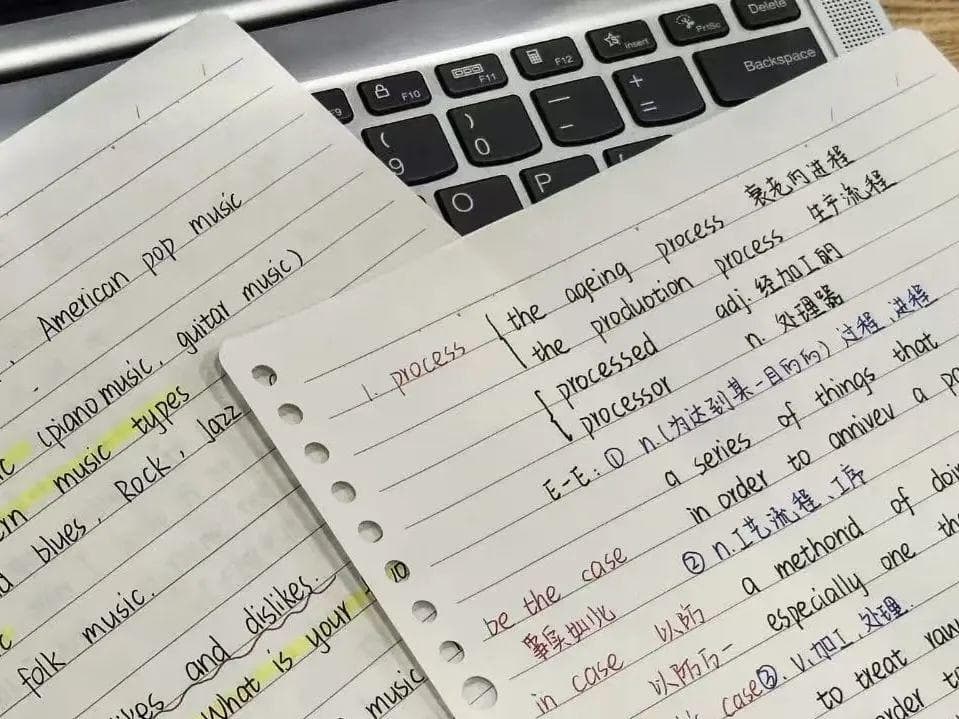 Delete
PrtSc
Insert
F12
F11
F10
F9
Backspace
+ =
— -
) 0
( 9
P
O
American pop music
(piano music, guitar music)
music types
blues, Rock, Jazz
folk music.
and dislikes.
What is your
music
1. process
the ageing process 衰老的进程
the produotion process 生产流程
processed adj. 经加工的
processor n. 处理器
E-E: ① n.(为达到某一目的的) 过程、进程
a series of things that
in order to annivev a
② n.工艺流程、工序
be the case a methond of
事实如此 especially one
in case 以防
以防万一 ③. v.加工,处理.
case to treat raw
10